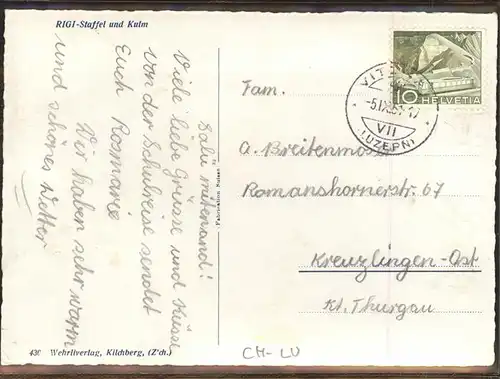 RIGI-Staffel und Kulm
Salü mitenand!
Viele liebe Grüsse und Küsse
von der Schulreise sendet
Euch Rosmarie
Wir haben sehr warm
und schönes Wetter
Fabrikation Suisse
430 Wehrliverlag, Kilchberg, (Z'ch.)
10 HELVETIA
VII
(LUZERN)
Fam.
A. Breitenmoser
Romanshornerstr. 67
Kreuzlingen-Ost
Kt. Thurgau
CH-LU